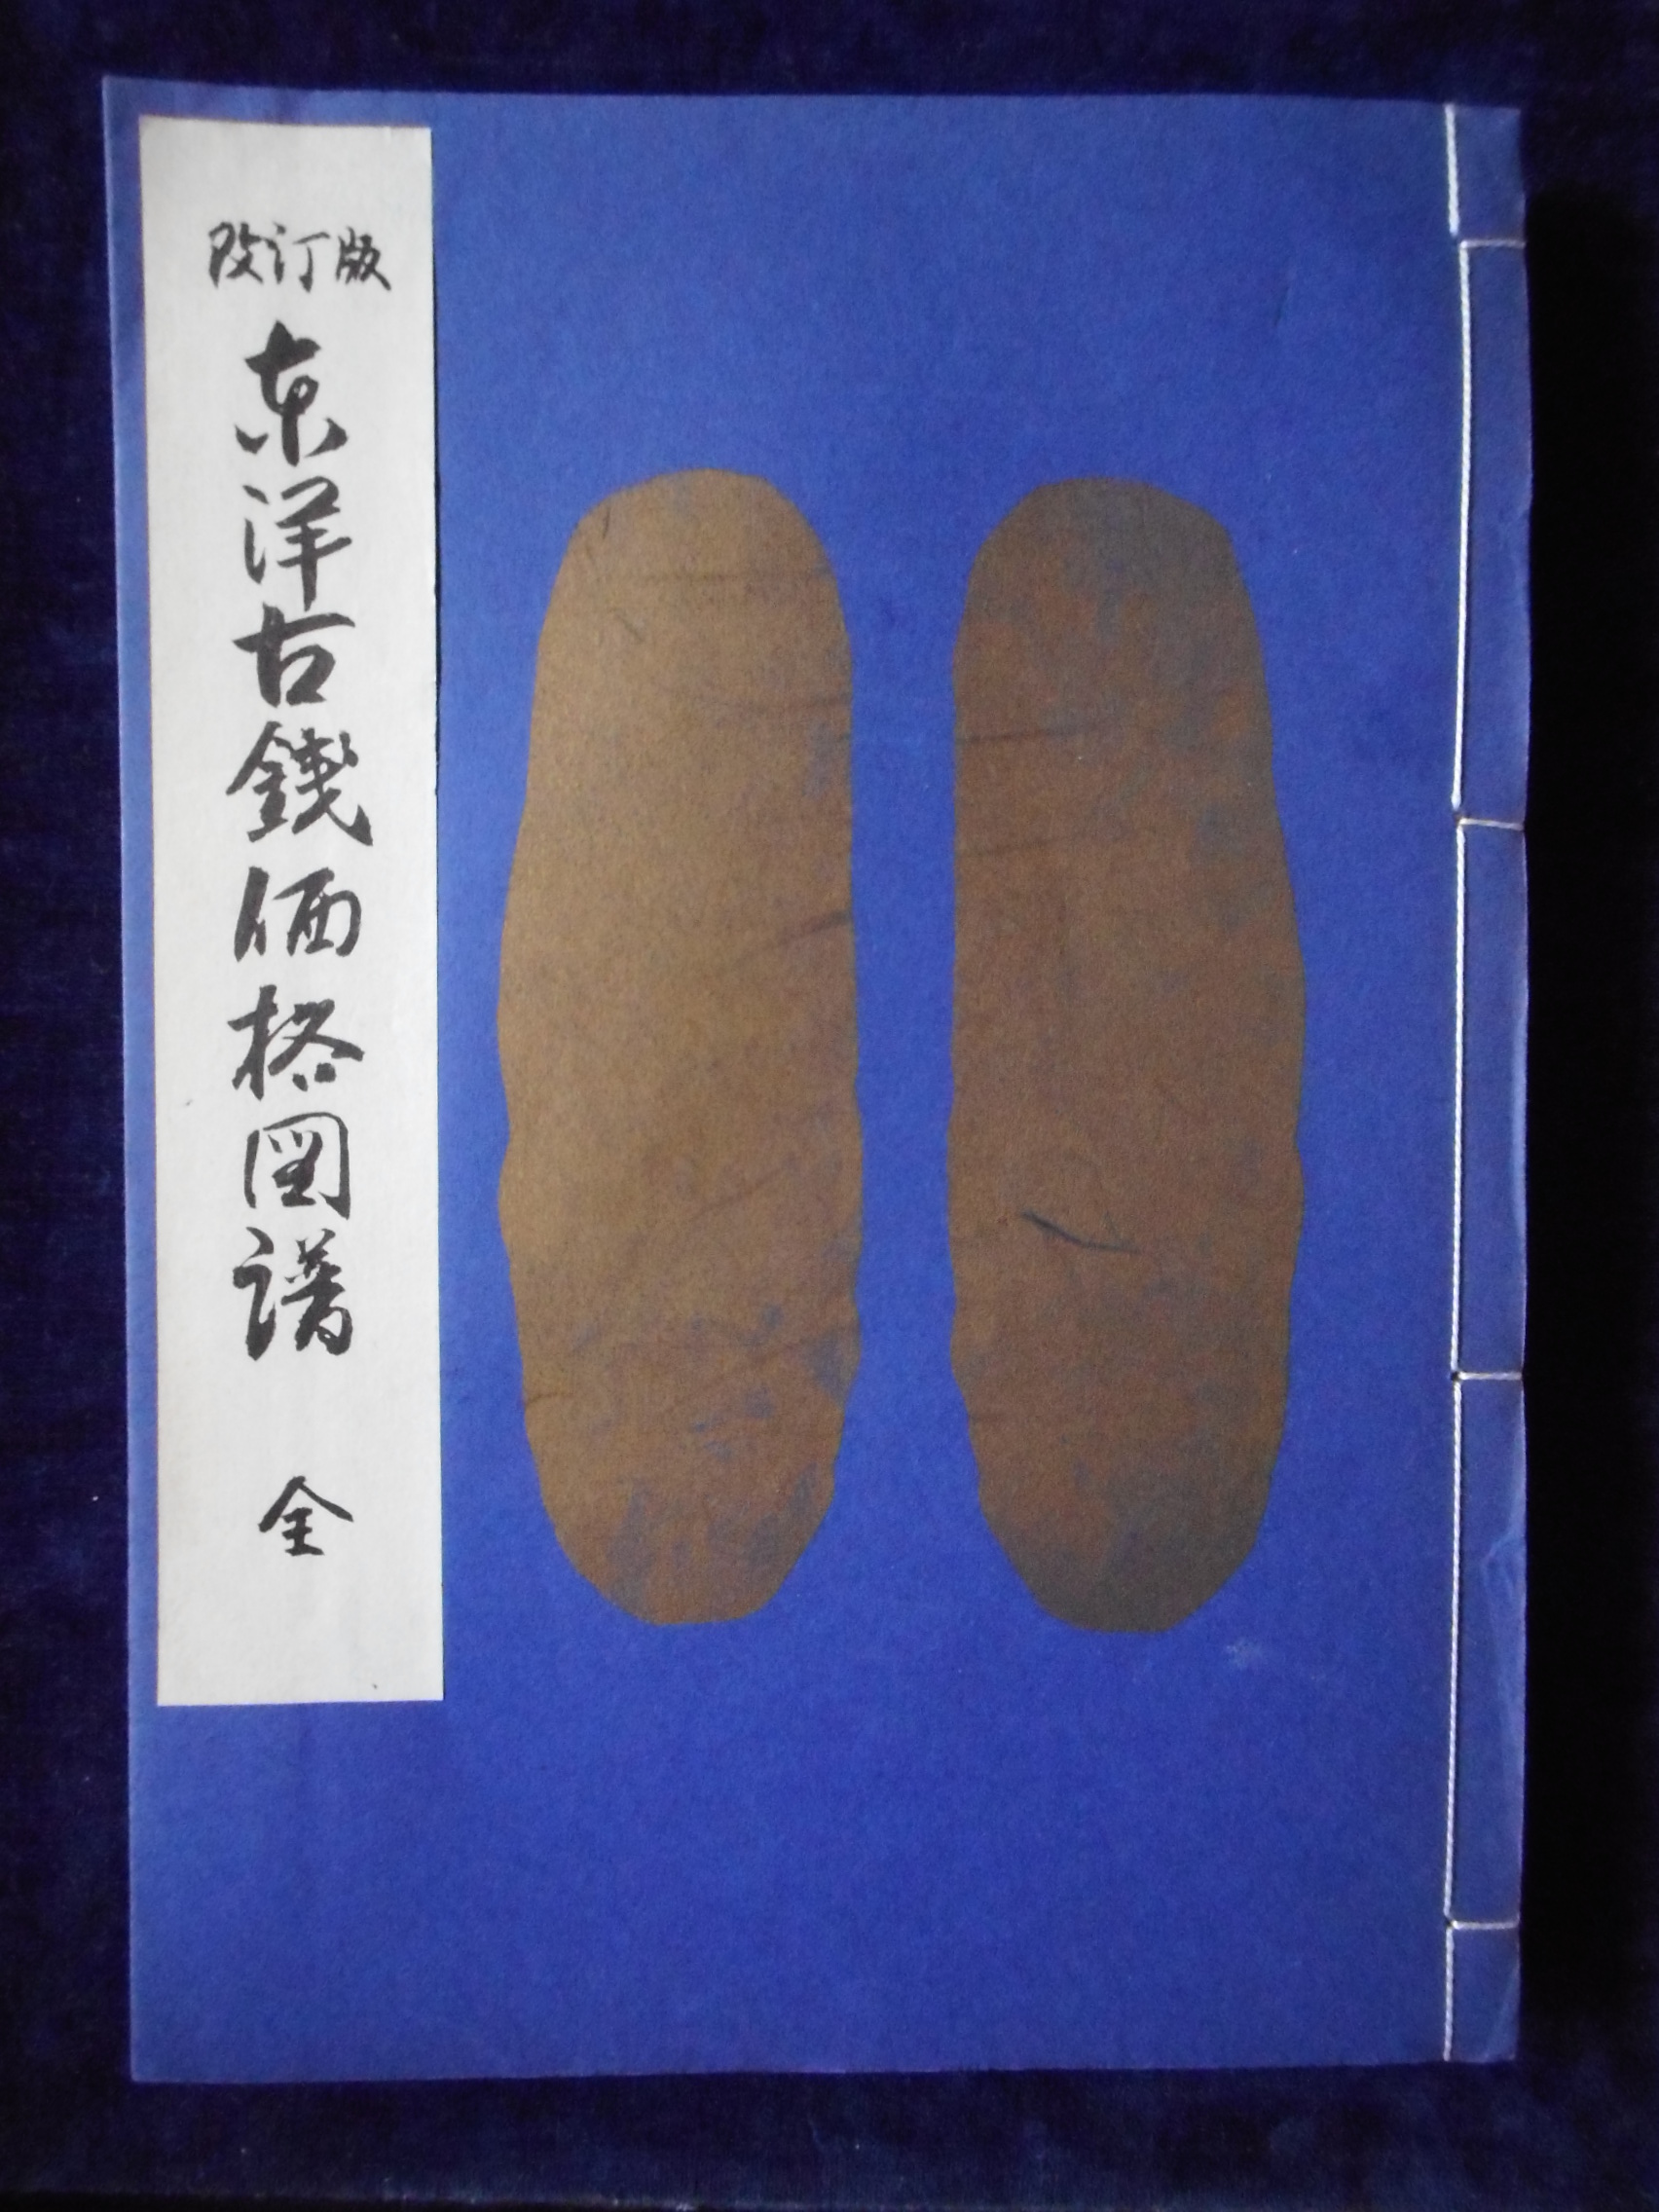 改訂版
東洋古銭価格図譜
全